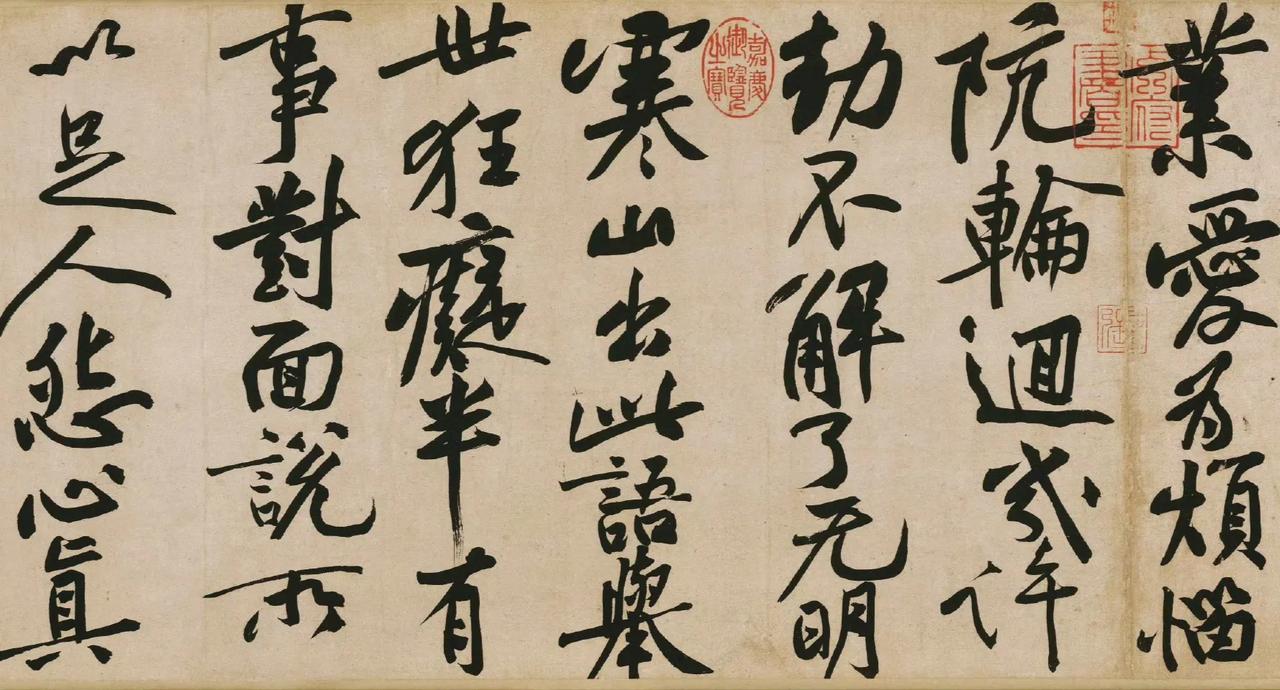 業愛為煩惱
阬輪迴幾許
劫不解了无明
嘉慶御覽之寶
寒山出此語舉
世狂癡半有
事對面說所
以足人怨心真